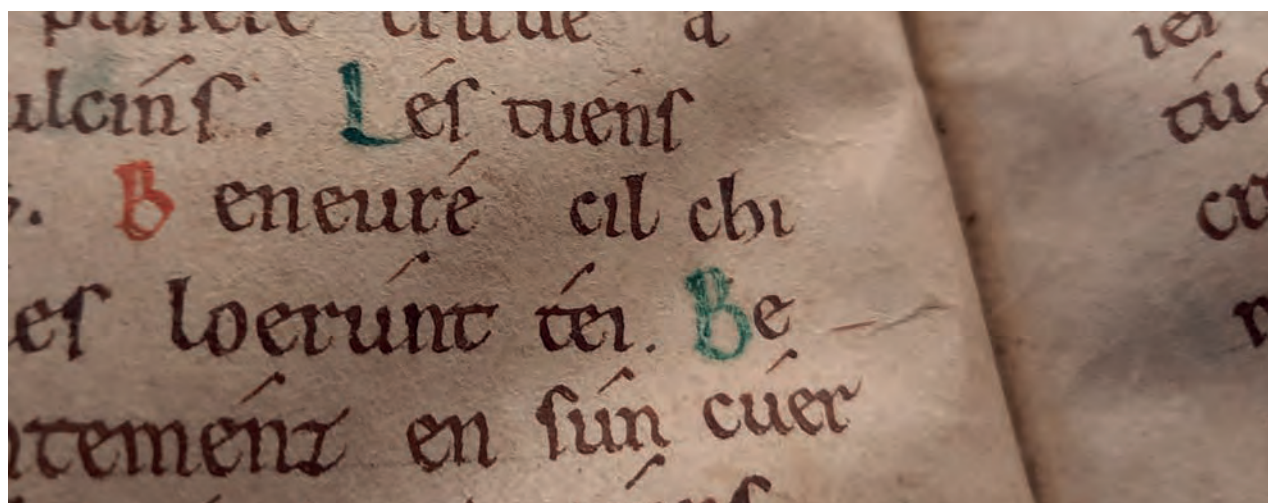 a
ulcínſ. Léſ tuenſ
Beneuré cil chi
eſ loerúnt téi. Be
temént en ſún cúer